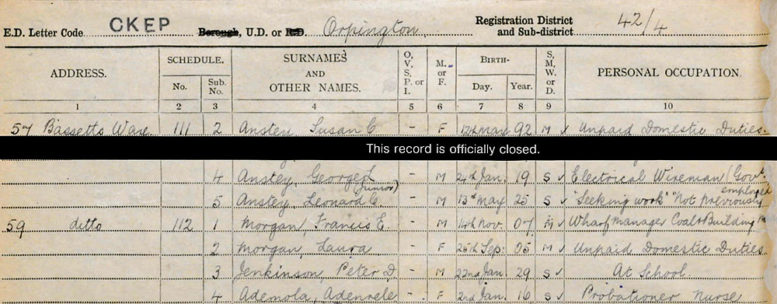 E.D. Letter Code CKEP Borough, U.D. or R.D. Orpington Registration District and Sub-district 42/4
ADDRESS. SCHEDULE. No. Sub. No. SURNAMES AND OTHER NAMES. O, V, S, P. or I. M. or F. BIRTH- Day. Year. S, M, W, or D. PERSONAL OCCUPATION.
1 2 3 4 5 6 7 8 9 10
57 Bassetts Way 111 2 Anstey, Susan C - F 12th May 92 M ✓ Unpaid Domestic Duties
This record is officially closed.
4 Anstey, George L - M 24th Jan. 19 S ✓ Electrical Wireman (Govt.
(Junior) employed
5 Anstey, Leonard C. - M 13th May 25 S ✓ "Seeking work" Not previously
59 ditto 112 1 Morgan, Francis E. - M 14th Nov. 07 M ✓ Wharf Manager Coal & Building
2 Morgan, Laura - F 25th Sep: 05 M ✓ Unpaid Domestic Duties
3 Jenkinson, Peter D. - M 22nd Jan. 29 S ✓ At School
4 Ademola, Adenrele - F 2nd Jan. 16 S ✓ Probationer Nurse